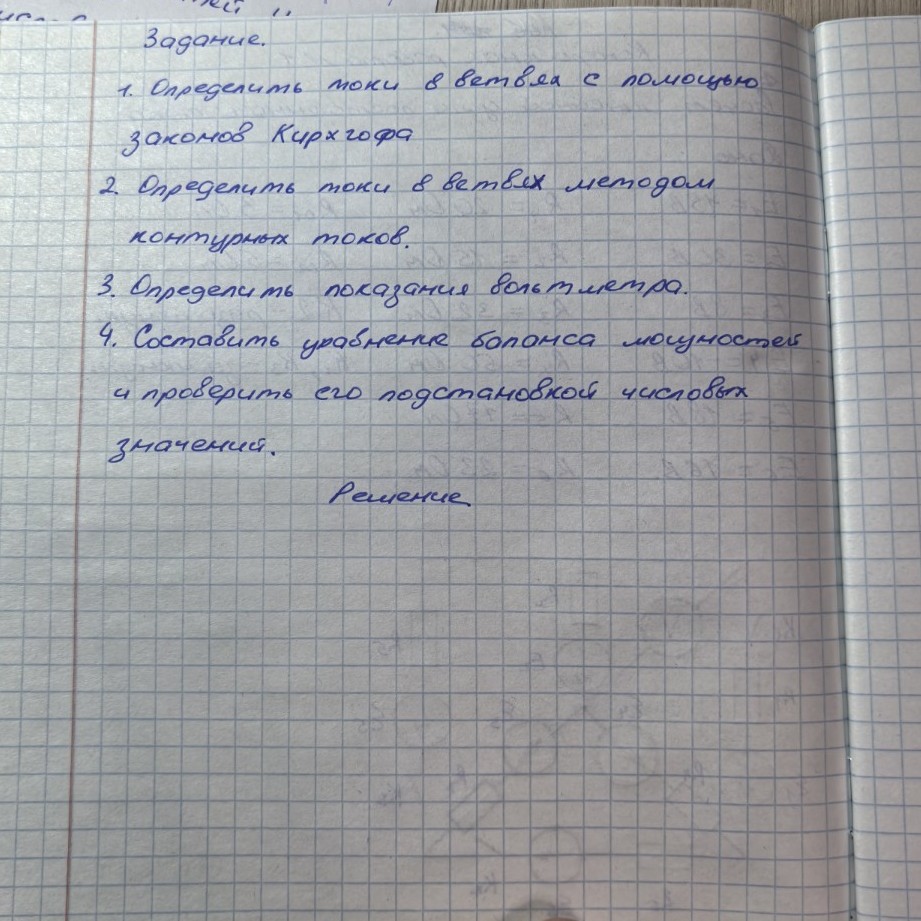 Задание.
1. Определить токи в ветвях с помощью
законов Кирхгофа
2. Определить токи в ветвях методом
контурных токов.
3. Определить показания вольтметра.
4. Составить уравнение баланса мощностей
и проверить его подстановкой числовых
значений.
Решение